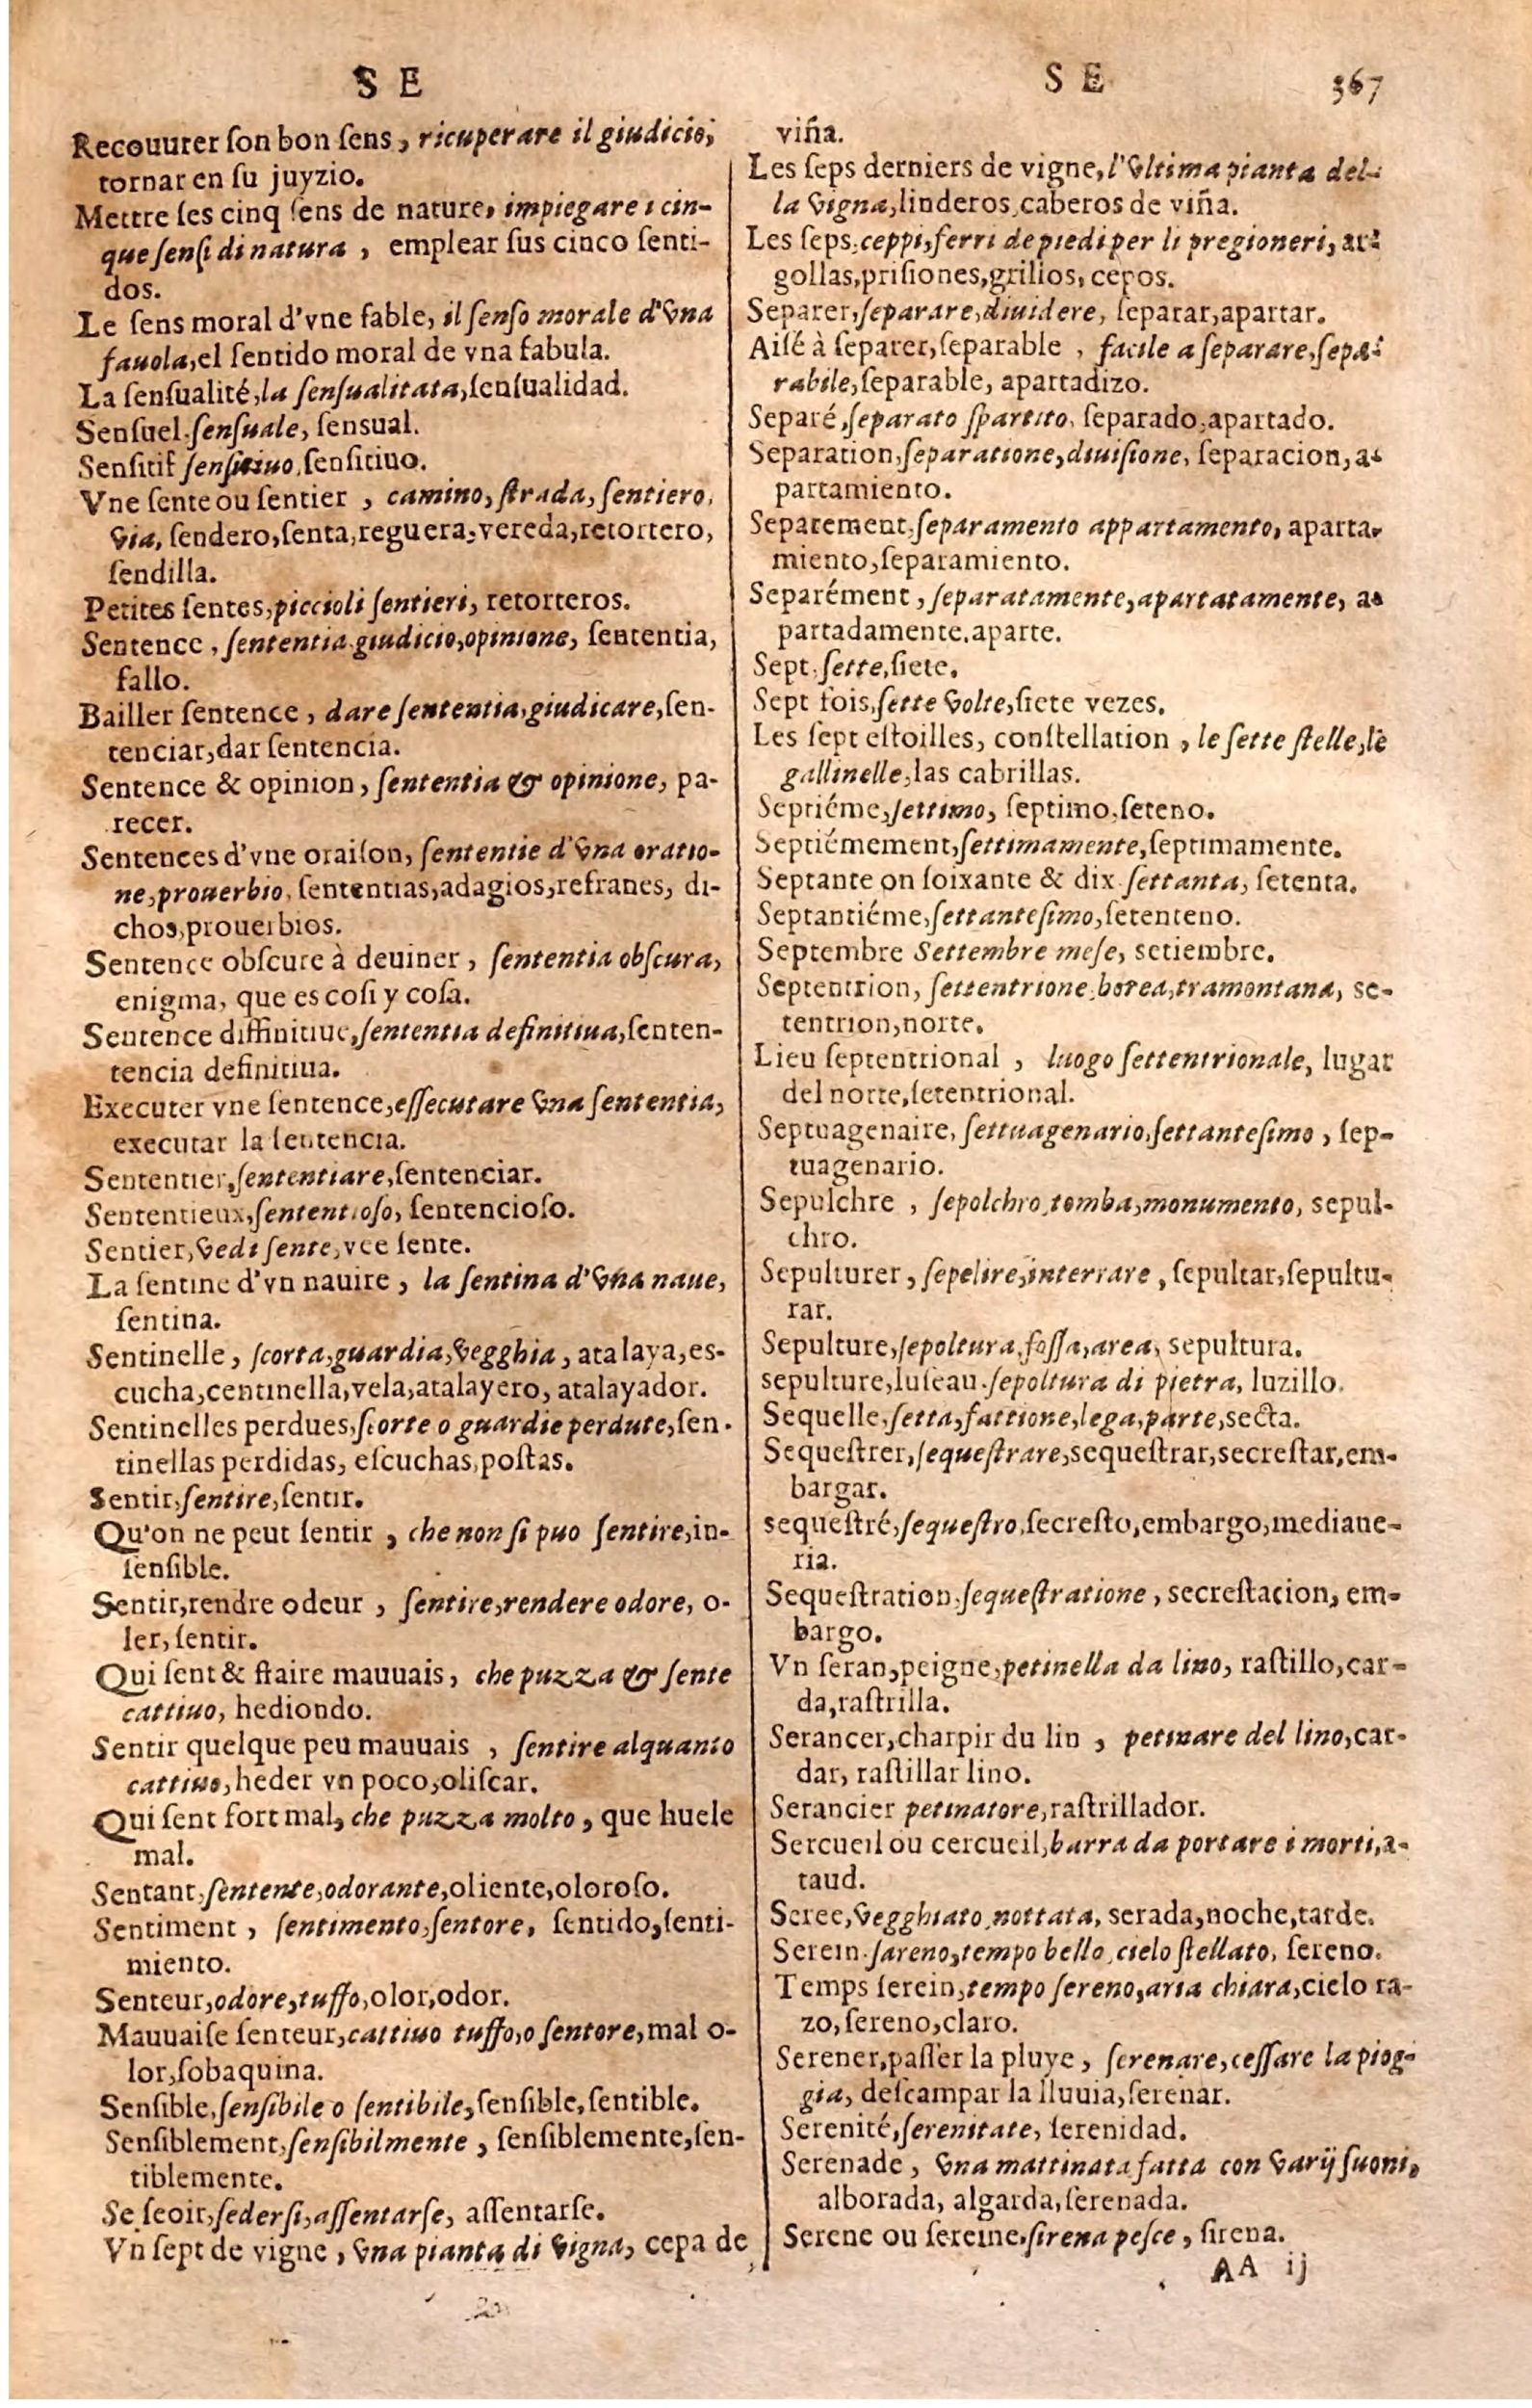 S E
Recouurer ſon bon ſens, ricuperare il giudicio,
tornar en ſu juyzio.
Mettre ſes cinq ſens de nature, impiegare i cin-
que ſenſi di natura, emplear ſus cinco ſenti-
dos.
Le ſens moral d'vne fable, il ſenſo morale d'vna
fauola, el ſentido moral de vna fabula.
La ſenſualité, la ſenſualitata, ſenſualidad.
Senſuel, ſenſuale, ſensual.
Senſitif ſenſitiuo, ſenſitiuo.
Vne ſente ou ſentier, camino, ſtrada, ſentiero,
via, ſendero, ſenta, reguera, vereda, retortero,
ſendilla.
Petites ſentes, piccioli ſentieri, retorteros.
Sentence, ſententia, giudicio, opinione, ſententia,
fallo.
Bailler ſentence, dare ſententia, giudicare, ſen-
tenciar, dar ſentencia.
Sentence & opinion, ſententia & opinione, pa-
recer.
Sentences d'vne oraiſon, ſententie d'vna oratio-
ne, prouerbio, ſententias, adagios, refranes, di-
chos, prouerbios.
Sentence obſcure à deuiner, ſententia obſcura,
enigma, que es coſi y coſa.
Sentence diffinitiue, ſententia definitiua, ſenten-
tencia definitiua.
Executer vne ſentence, eſſecutare vna ſententia,
executar la ſentencia.
Sententier, ſententiare, ſentenciar.
Sententieux, ſententioſo, ſentencioſo.
Sentier, vedi ſente, vee ſente.
La ſentine d'vn nauire, la ſentina d'vna naue,
ſentina.
Sentinelle, ſcorta, guardia, vegghia, atalaya, es-
cucha, centinella, vela, atalayero, atalayador.
Sentinelles perdues, ſcorte o guardie perdute, ſen-
tinellas perdidas, eſcuchas, poſtas.
Sentir, ſentire, ſentir.
Qu'on ne peut ſentir, che non ſi puo ſentire, in-
ſenſible.
Sentir, rendre odeur, ſentire, rendere odore, o-
ler, ſentir.
Qui ſent & flaire mauuais, che puzza & ſente
cattiuo, hediondo.
Sentir quelque peu mauuais, ſentire alquanto
cattiuo, heder vn poco, oliſcar.
Qui ſent fort mal, che puzza molto, que huele
mal.
Sentant, ſentente, odorante, oliente, oloroſo.
Sentiment, ſentimento, ſentore, ſentido, ſenti-
miento.
Senteur, odore, tuffo, olor, odor.
Mauuaiſe ſenteur, cattiuo tuffo, o ſentore, mal o-
lor, ſobaquina.
Senſible, ſenſibile o ſentibile, ſenſible, ſentible.
Senſiblement, ſenſibilmente, ſenſiblemente, ſen-
tiblemente.
Se ſeoir, ſederſi, aſſentarſe, aſſentarſe.
Vn ſept de vigne, vna pianta di vigna, cepa de
S E 367
viña.
Les ſeps derniers de vigne, l'vltima pianta del-
la vigna, linderos, caberos de viña.
Les ſeps, ceppi, ferri de piedi per li pregioneri, ar-
gollas, priſiones, grillos, cepos.
Separer, ſeparare, diuidere, ſeparar, apartar.
Aiſé à ſeparer, ſeparable, facile a ſeparare, ſepa-
rabile, ſeparable, apartadizo.
Separé, ſeparato ſpartito, ſeparado, apartado.
Separation, ſeparatione, diuiſione, ſeparacion, a-
partamiento.
Separement, ſeparamento appartamento, aparta-
miento, ſeparamiento.
Separément, ſeparatamente, apartatamente, a-
partadamente, aparte.
Sept, ſette, ſiete.
Sept fois, ſette volte, ſiete vezes.
Les ſept eſtoilles, conſtellation, le ſette ſtelle, le
gallinelle, las cabrillas.
Septiéme, ſettimo, ſeptimo, ſeteno.
Septiémement, ſettimamente, ſeptimamente.
Septante on ſoixante & dix ſettanta, ſetenta.
Septantiéme, ſettanteſimo, ſetenteno.
Septembre Settembre meſe, setiembre.
Septentrion, ſettentrione, borea, tramontana, se-
tentrion, norte.
Lieu ſeptentrional, luogo ſettentrionale, lugar
del norte, ſetentrional.
Septuagenaire, ſettuagenario, ſettanteſimo, ſep-
tuagenario.
Sepulchre, ſepolchro, tomba, monumento, sepul-
chro.
Sepulturer, ſepelire, interrare, ſepultar, ſepultu-
rar.
Sepulture, ſepoltura, foſſa, area, sepultura.
sepulture, luſeau. ſepoltura di pietra, luzillo.
Sequelle, ſetta, fattione, lega, parte, secta.
Sequeſtrer, ſequeſtrare, sequeſtrar, secreſtar, em-
bargar.
sequeſtré, ſequeſtro, ſecreſto, embargo, mediane-
ria.
Sequeſtration, ſequeſtratione, secreſtacion, em-
bargo.
Vn ſeran, peigne, petinella da lino, raſtillo, car-
da, raſtrilla.
Serancer, charpir du lin, petinare del lino, car-
dar, raſtillar lino.
Serancier petinatore, raſtrillador.
Sercueil ou cercueil, barra da portare i morti, a-
taud.
Seree, vegghiato, nottata, serada, noche, tarde.
Serein. ſareno, tempo bello, cielo ſtellato, ſereno.
Temps ſerein, tempo ſereno, aria chiara, cielo ra-
zo, ſereno, claro.
Serener, paſſer la pluye, ſerenare, ceſſare la piog-
gia, deſcampar la lluuia, ſerenar.
Serenité, ſerenitate, ſerenidad.
Serenade, vna mattinata fatta con varij ſuoni,
alborada, algarda, ſerenada.
Serene ou ſereine. ſirena peſce, ſirena.
AA ij